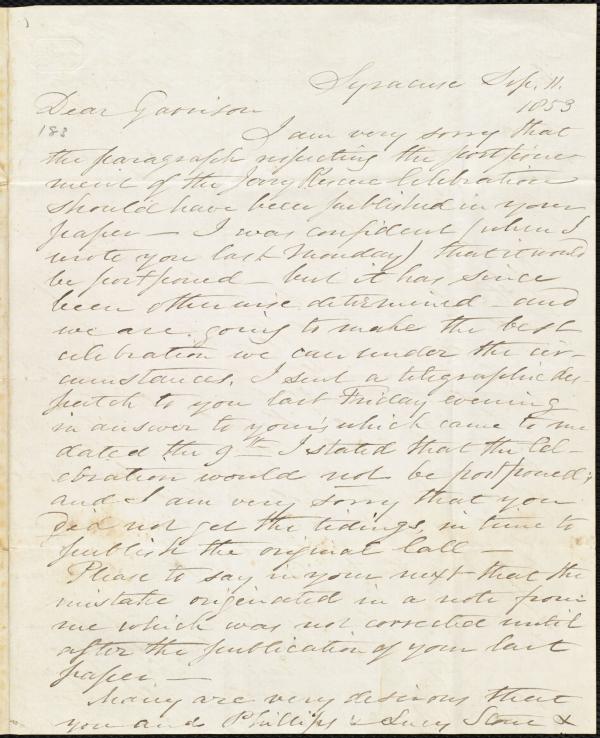 Syracuse Sep. 11.
1853
Dear Garrison
188
I am very sorry that
the paragraph respecting the postpone-
ment of the Jerry Rescue Celebration
should have been published in your
paper — I was confident (when I
wrote you last Monday) that it would
be postponed — but it has since
been otherwise determined — and
we are going to make the best
celebration we can under the cir-
cumstances. I sent a telegraphic des-
patch to you last Friday evening
in answer to your's which came to me
dated the 9th. I stated that the Cel-
ebration would not be postponed;
and I am very sorry that you
did not get the tidings, in time to
publish the original Call —
Please to say in your next that the
mistake originated in a note from
me which was not corrected until
after the publication of your last
paper —
Many are very desirous that
you and Phillips & Lucy Stone &